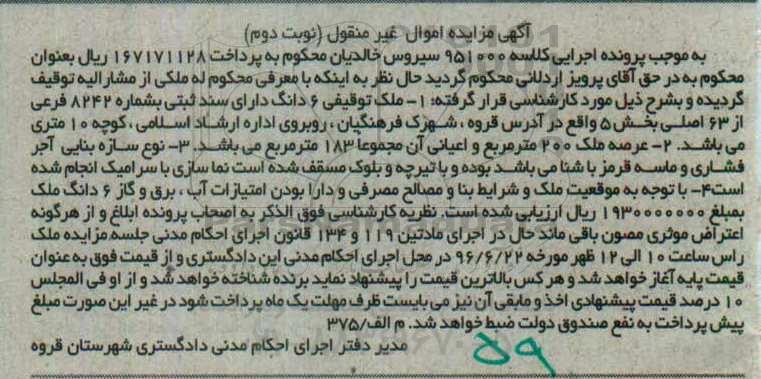 آگهی مزایده اموال غیر منقول (نوبت دوم)
به موجب پرونده اجرایی کلاسه ۹۵۱۰۰۰ سیروس خالدیان محکوم به پرداخت ۱۶۷۱۷۱۱۲۸ ریال بعنوان
محکوم به در حق آقای پرویز اردلانی محکوم گردید حال نظر به اینکه با معرفی محکوم له ملکی از مشار الیه توقیف
گردیده و بشرح ذیل مورد کارشناسی قرار گرفته: ۱- ملک توقیفی ۶ دانگ دارای سند ثبتی بشماره ۸۲۴۲ فرعی
از ۶۳ اصلی بخش ۵ واقع در آدرس قروه ، شهرک فرهنگیان ، روبروی اداره ارشاد اسلامی ، کوچه ۱۰ متری
می باشد. ۲- عرصه ملک ۲۰۰ مترمربع و اعیانی آن مجموعا ۱۸۳ مترمربع می باشد. ۳- نوع سازه بنایی آجر
فشاری و ماسه قرمز با شنا می باشد بوده و با تیرچه و بلوک مسقف شده است نما سازی با سرامیک انجام شده
است۴- با توجه به موقعیت ملک و شرایط بنا و مصالح مصرفی و دارا بودن امتیازات آب ، برق و گاز ۶ دانگ ملک
بمبلغ ۱۹۳۰۰۰۰۰۰۰ ریال ارزیابی شده است. نظریه کارشناسی فوق الذکر به اصحاب پرونده ابلاغ و از هرگونه
اعتراض موثری مصون باقی ماند حال در اجرای مادتین ۱۱۹ و ۱۳۴ قانون اجرای احکام مدنی جلسه مزایده ملک
راس ساعت ۱۰ الی ۱۲ ظهر مورخه ۹۶/۶/۲۲ در محل اجرای احکام مدنی این دادگستری و از قیمت فوق به عنوان
قیمت پایه آغاز خواهد شد و هر کس بالاترین قیمت را پیشنهاد نماید برنده شناخته خواهد شد و از او فی المجلس
۱۰ درصد قیمت پیشنهادی اخذ و مابقی آن نیز می بایست ظرف مهلت یک ماه پرداخت شود در غیر این صورت مبلغ
پیش پرداخت به نفع صندوق دولت ضبط خواهد شد. م الف/۳۷۵
مدیر دفتر اجرای احکام مدنی دادگستری شهرستان قروه
۵۹